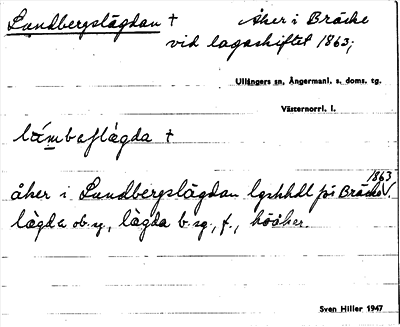 Lundbergslägdan † Åker i Bräcke
vid lagaskiftet 1863;
Ullångers sn, Ångermanl. s. doms. tg.
Västernorrl. l.
†
åker i Lundbergslägdan lgskhdl för Bräcke 1863.
lägda ob. sg., lägda b. sg., f., höåker.
Sven Hiller 1947